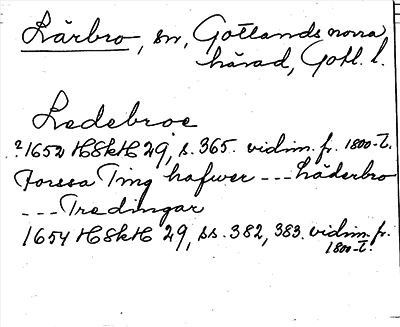 Lärbro, sn, Gotlands norra
härad, Gotl. l.
Ledebroe
?1652 HSkH 29, s. 365. vidim. fr. 1800-t.
Forssa Ting hafwer --- Läderbro
--- Tredingar
1654 HSkH 29, ss. 382, 383. vidim. fr.
1800-t.